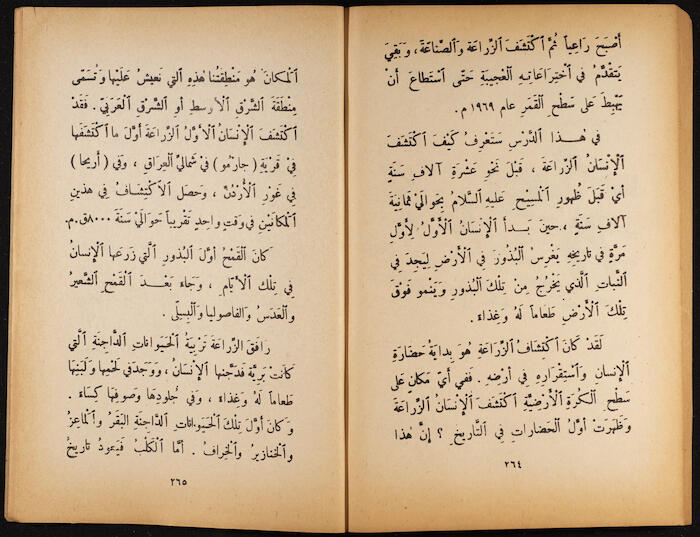 أَصْبَحَ رَاعِياً ثُمَّ اَكْتَشَفَ اَلزِّرَاعَةَ وَالصِّنَاعَةَ ، وَبَقِيَ
يَتَقَدَّمُ فِي اَخْتِرَاعَاتِهِ اَلْعَجِيبَةِ حَتَّى اَسْتَطَاعَ أَنْ
يَهْبِطَ عَلَى سَطْحِ اَلْقَمَرِ عام ١٩٦٩ م.
في هٰذا اَلدَّرْسِ سَتَعْرِفُ كَيْفَ اَكْتَشَفَ
اَلْإِنْسَانُ اَلزِّرَاعَةَ ، قَبْلَ نَحْوِ عَشْرَةِ آلافِ سَنَةٍ
أَيْ قَبْلَ ظُهورِ اَلْمَسِيْحِ عَلَيهِ السَّلامُ بِحَوالَيْ ثَمَانِيَةِ
آلافِ سَنَةٍ ، حينَ بَدَأَ اَلْإِنْسَانُ اَلْأَوَّلُ لِأَوَّلِ
مَرَّةٍ في تاريخِهِ يَغْرِسُ اَلْبُذُورَ في اَلْأَرْضِ لِيَجِدَ فِي
اَلنَّبَاتِ اَلَّذي يَخْرُجُ مِنْ تِلْكَ اَلْبُذورِ وَيَنْمو فَوْقَ
تِلْكَ اَلْأَرْضِ طَعَاماً لَهُ وَغِذَاءً .
لَقَدْ كَانَ اَكْتِشَافُ اَلزِّرَاعَةِ هُوَ بِدَايَةُ حَضَارَةِ
اَلْإِنْسَانِ وَاَسْتِقْرارِهِ في أَرْضِهِ . فَفي أَيِّ مَكانٍ عَلى
سَطْحِ اَلْكُرَةِ اَلْأَرْضِيَّةِ اَكْتَشَفَ اَلْإِنْسَانُ اَلزِّرَاعَةَ
وَظَهَرَتْ أَوَّلُ اَلْحَضَاراتِ فِي اَلتَّاريخِ ؟ إِنَّ هٰذا
٢٦٤
اَلْمَكانَ هُوَ مَنْطِقَتُنا هٰذِهِ اَلَّتِي نَعِيشُ عَلَيْها وَتُسَمَّى
مِنْطَقَةَ اَلشَّرْقِ اَلْأَوْسطِ أَو اَلشَّرْقِ اَلْعَرَبِيِّ . فَقَدْ
اَكْتَشَفَ اَلْإِنْسَانُ اَلْأَوَّلُ اَلزِّرَاعَةَ أَوَّلَ ما اَكْتَشَفَها
فِيْ قَرْيَةِ ( جارْمُو ) فِيْ شَمَالِيِّ اَلْعِراقِ ، وَفِي ( أَريحا )
فِي غَوْرِ اَلْأُرْدُنِّ ، وَحَصَلَ اَلْاَكْتِشَافُ فِي هٰذَينِ
اَلْمَكانَيْنِ في وَقتٍ واحِدٍ تَقْريباً حَوالَيْ سَنَةَ ٨٠٠٠ق.م.
كَانَ اَلْقَمْحُ أَوَّلَ اَلْبُذورِ اَلَّتي زَرَعَها اَلْإِنْسانُ
فِي تِلْكَ اَلْأَيَّامِ ، وَجَاءَ بَعْدَ اَلْقَمْحِ اَلشَّعيرُ
وَاَلْعَدَسُ وَالفاصوليا وَاَلْبِسِلَّى .
رَافَقَ اَلزِّرَاعَةَ تَرْبِيَةُ اَلْحَيَوَاناتِ اَلدَّاجِنَةِ اَلَّتي
كانَتْ بَرِّيَّةً فَدَجَّنَها اَلْإِنْسَانُ ، وَوَجَدَ فِي لَحْمِها وَلَبَنِهَا
طَعَاماً لَهُ وَغِذَاءً ، وَفي جُلودِهَا وَصوفِهَا كِسَاءً .
وَكَانَ أَوَّلَ تِلْكَ اَلْحَيَوَاناتِ اَلدَّاجِنَةِ اَلْبَقَرُ وَاَلْمَاعِزُ
وَاَلْخَنازيرُ وَاَلْخِرافُ . أَمَّا اَلْكَلْبُ فَيَعودُ تاريخُ
٢٦٥